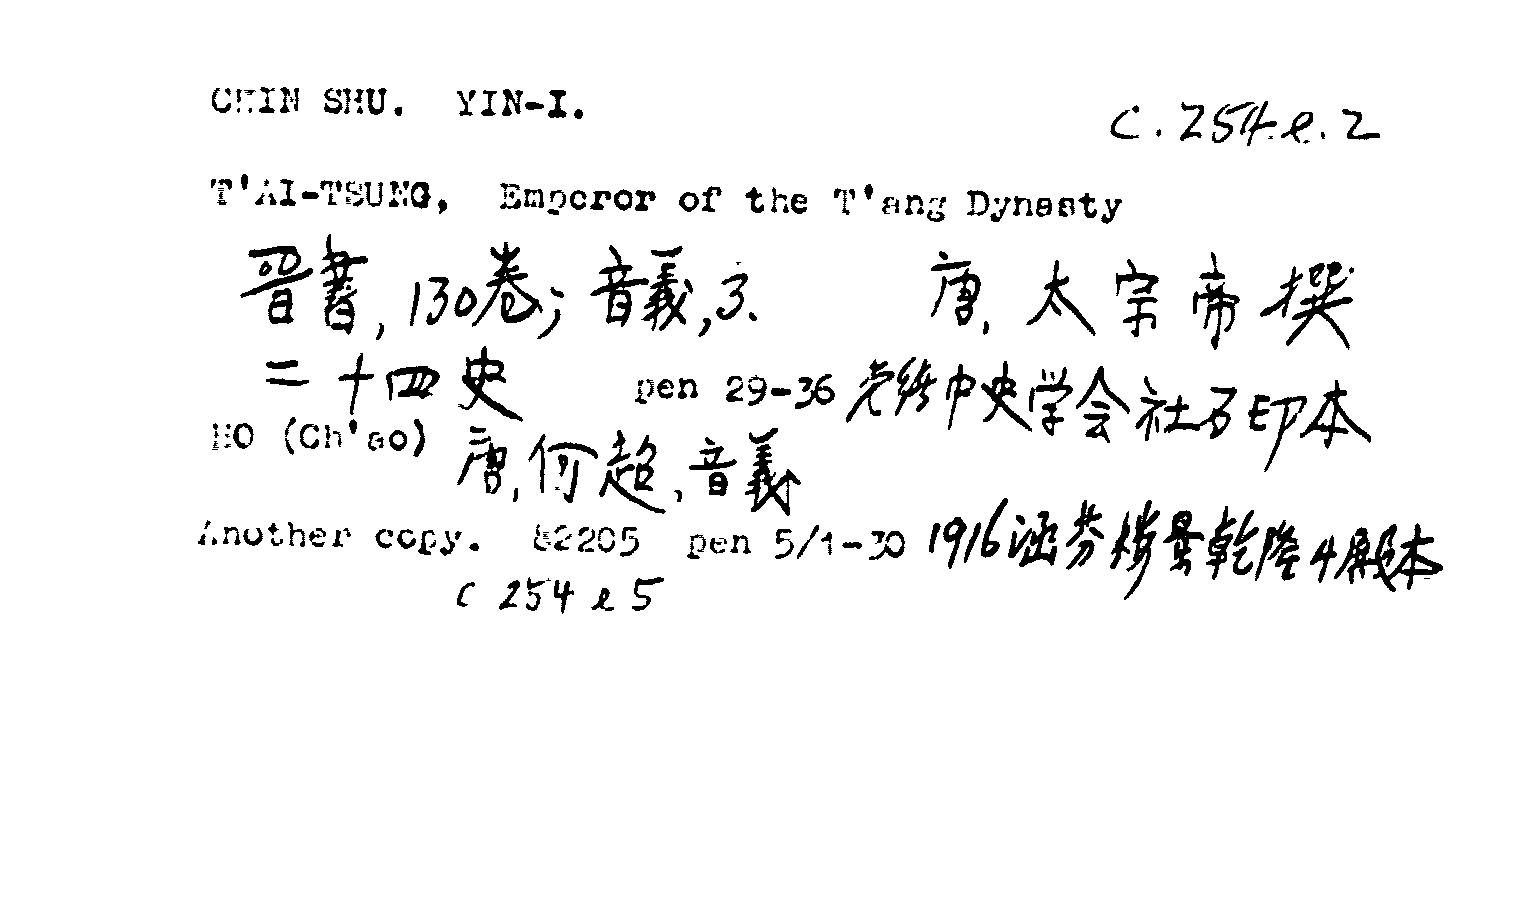 CHIN SHU. YIN-I.
C.254.e.2
T'AI-TSUNG, Emperor of the T'ang Dynasty
晋書, 130卷; 音義,3. 唐, 太宗帝撰
二十四史 pen 29-36 光緒中史学会社石印本
HO (Ch'ao) 唐,何超,音義
Another copy. 82205 pen 5/1-30 1916涵芬樓景乾隆4殿本
C 254 e 5